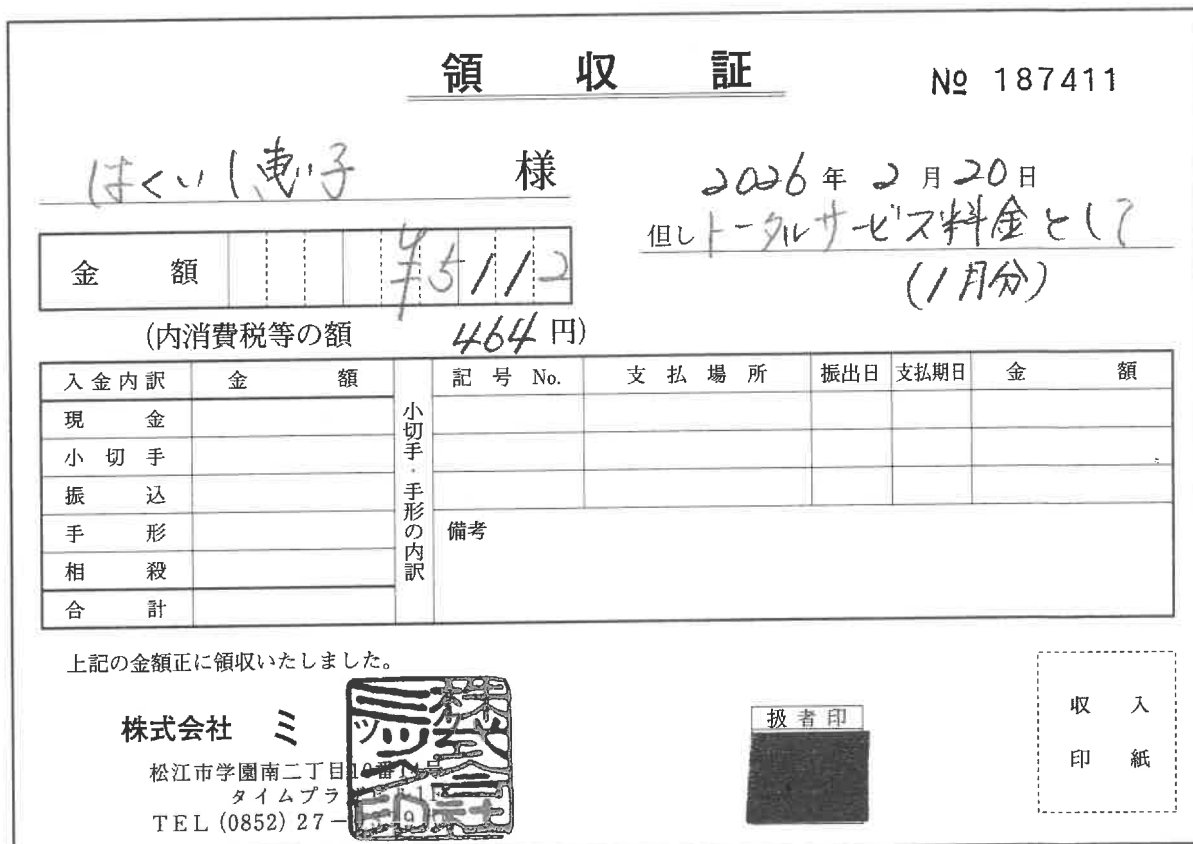 領収証
№ 187411
はくいし恵子 様
2026年2月20日
但しトータルサービス料金として
(1月分)
金額 ¥5112
(内消費税等の額 464円)
入金内訳 金額
現金
小切手
振込
手形
相殺
合計
小切手・手形の内訳
記号No. 支払場所 振出日 支払期日 金額
備考
上記の金額正に領収いたしました。
株式会社 ミ
松江市学園南二丁目10番14号
タイムプラ
TEL (0852) 27-
扱者印
収入
印紙